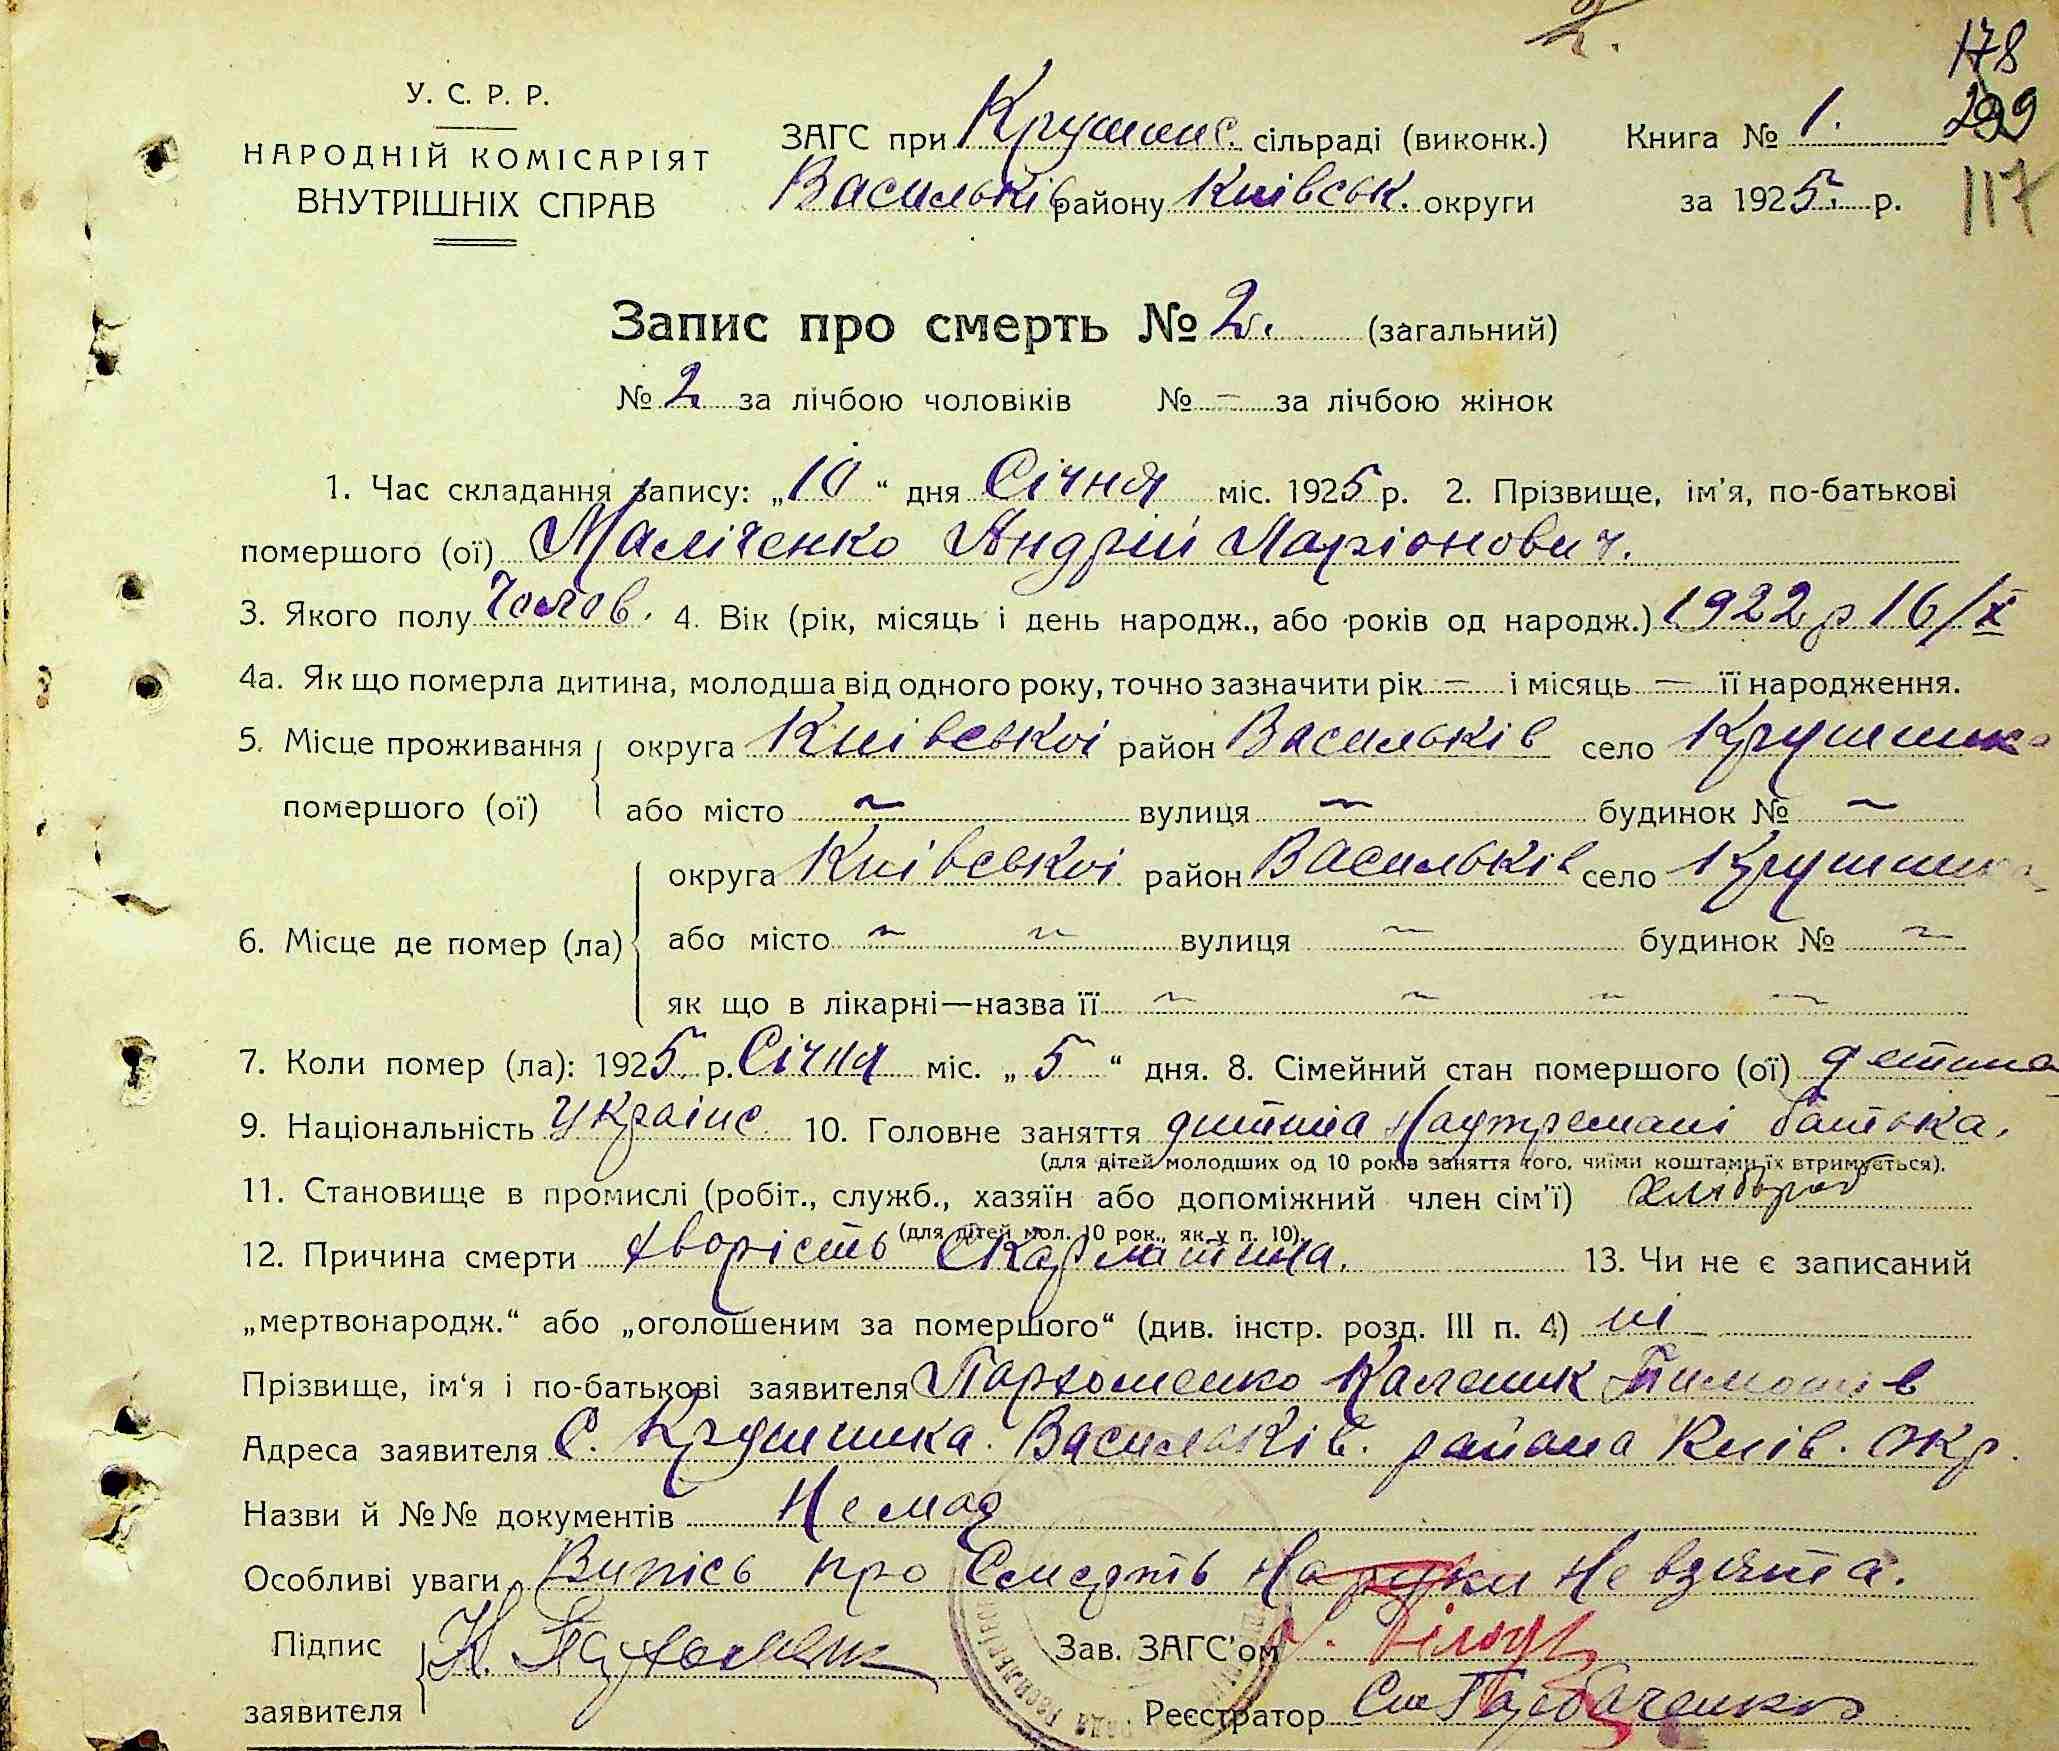 2.
178
У. С. Р. Р.
299
НАРОДНІЙ КОМІСАРІЯТ
ВНУТРІШНІХ СПРАВ
ЗАГС при Крушинс. сільраді (виконк.) Книга № 1.
Васильків району Київськ. округи за 1925 р.
117
Запис про смерть № 2. (загальний)
№ 2 за лічбою чоловіків № – за лічбою жінок
1. Час складання запису: „10“ дня Січня міс. 1925 р. 2. Прізвище, ім'я, по-батькові
помершого (ої) Маліченко Андрій Ларіонович.
3. Якого полу Чолов. 4. Вік (рік, місяць і день народж., або років од народж.) 1922 р 16/X
4а. Як що померла дитина, молодша від одного року, точно зазначити рік – і місяць – її народження.
5. Місце проживання округа Київськоі район Васильків село Крушинка
помершого (ої) або місто ~ вулиця ~ будинок № ~
округа Київськоі район Васильків село Крушинка
6. Місце де помер (ла) або місто ~ ~ вулиця ~ будинок № ~
як що в лікарні—назва її ~ ~ ~ ~
7. Коли помер (ла): 1925 р. Січня міс. „5“ дня. 8. Сімейний стан помершого (ої) детина
9. Національність Украінс 10. Головне заняття дитина батька.
(для дітей молодших од 10 років заняття того, чиїми коштами їх втримується).
11. Становище в промислі (робіт., служб., хазяїн або допоміжний член сім'ї) хлібороб
(для дітей мол. 10 рок., як у п. 10).
12. Причина смерти хворість Скарлатина. 13. Чи не є записаний
„мертвонародж.“ або „оголошеним за помершого“ (див. інстр. розд. III п. 4) ні
Прізвище, ім'я і по-батькові заявителя Пархоменко Каленик Тимошів
Адреса заявителя С. Крушинка. Васильків. района Київ. окр.
Назви й №№ документів Немає
Особливі уваги Випісь про Смерть На руки Не взята.
Підпис К. Зав. ЗАГС'ом
заявителя Реєстратор Горбаченко